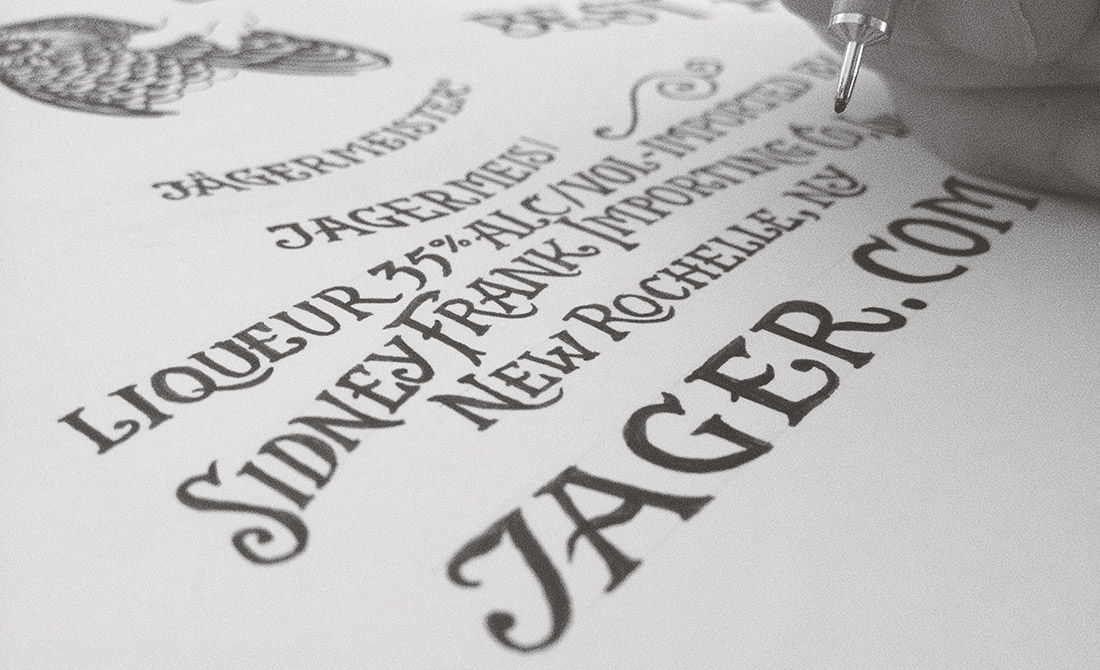 BEAST
JÄGERMEISTER
JAGERMEIS
LIQUEUR 35% ALC/VOL· IMPORTED BY
SIDNEY FRANK IMPORTING CO.
NEW ROCHELLE, NY
JAGER.COM